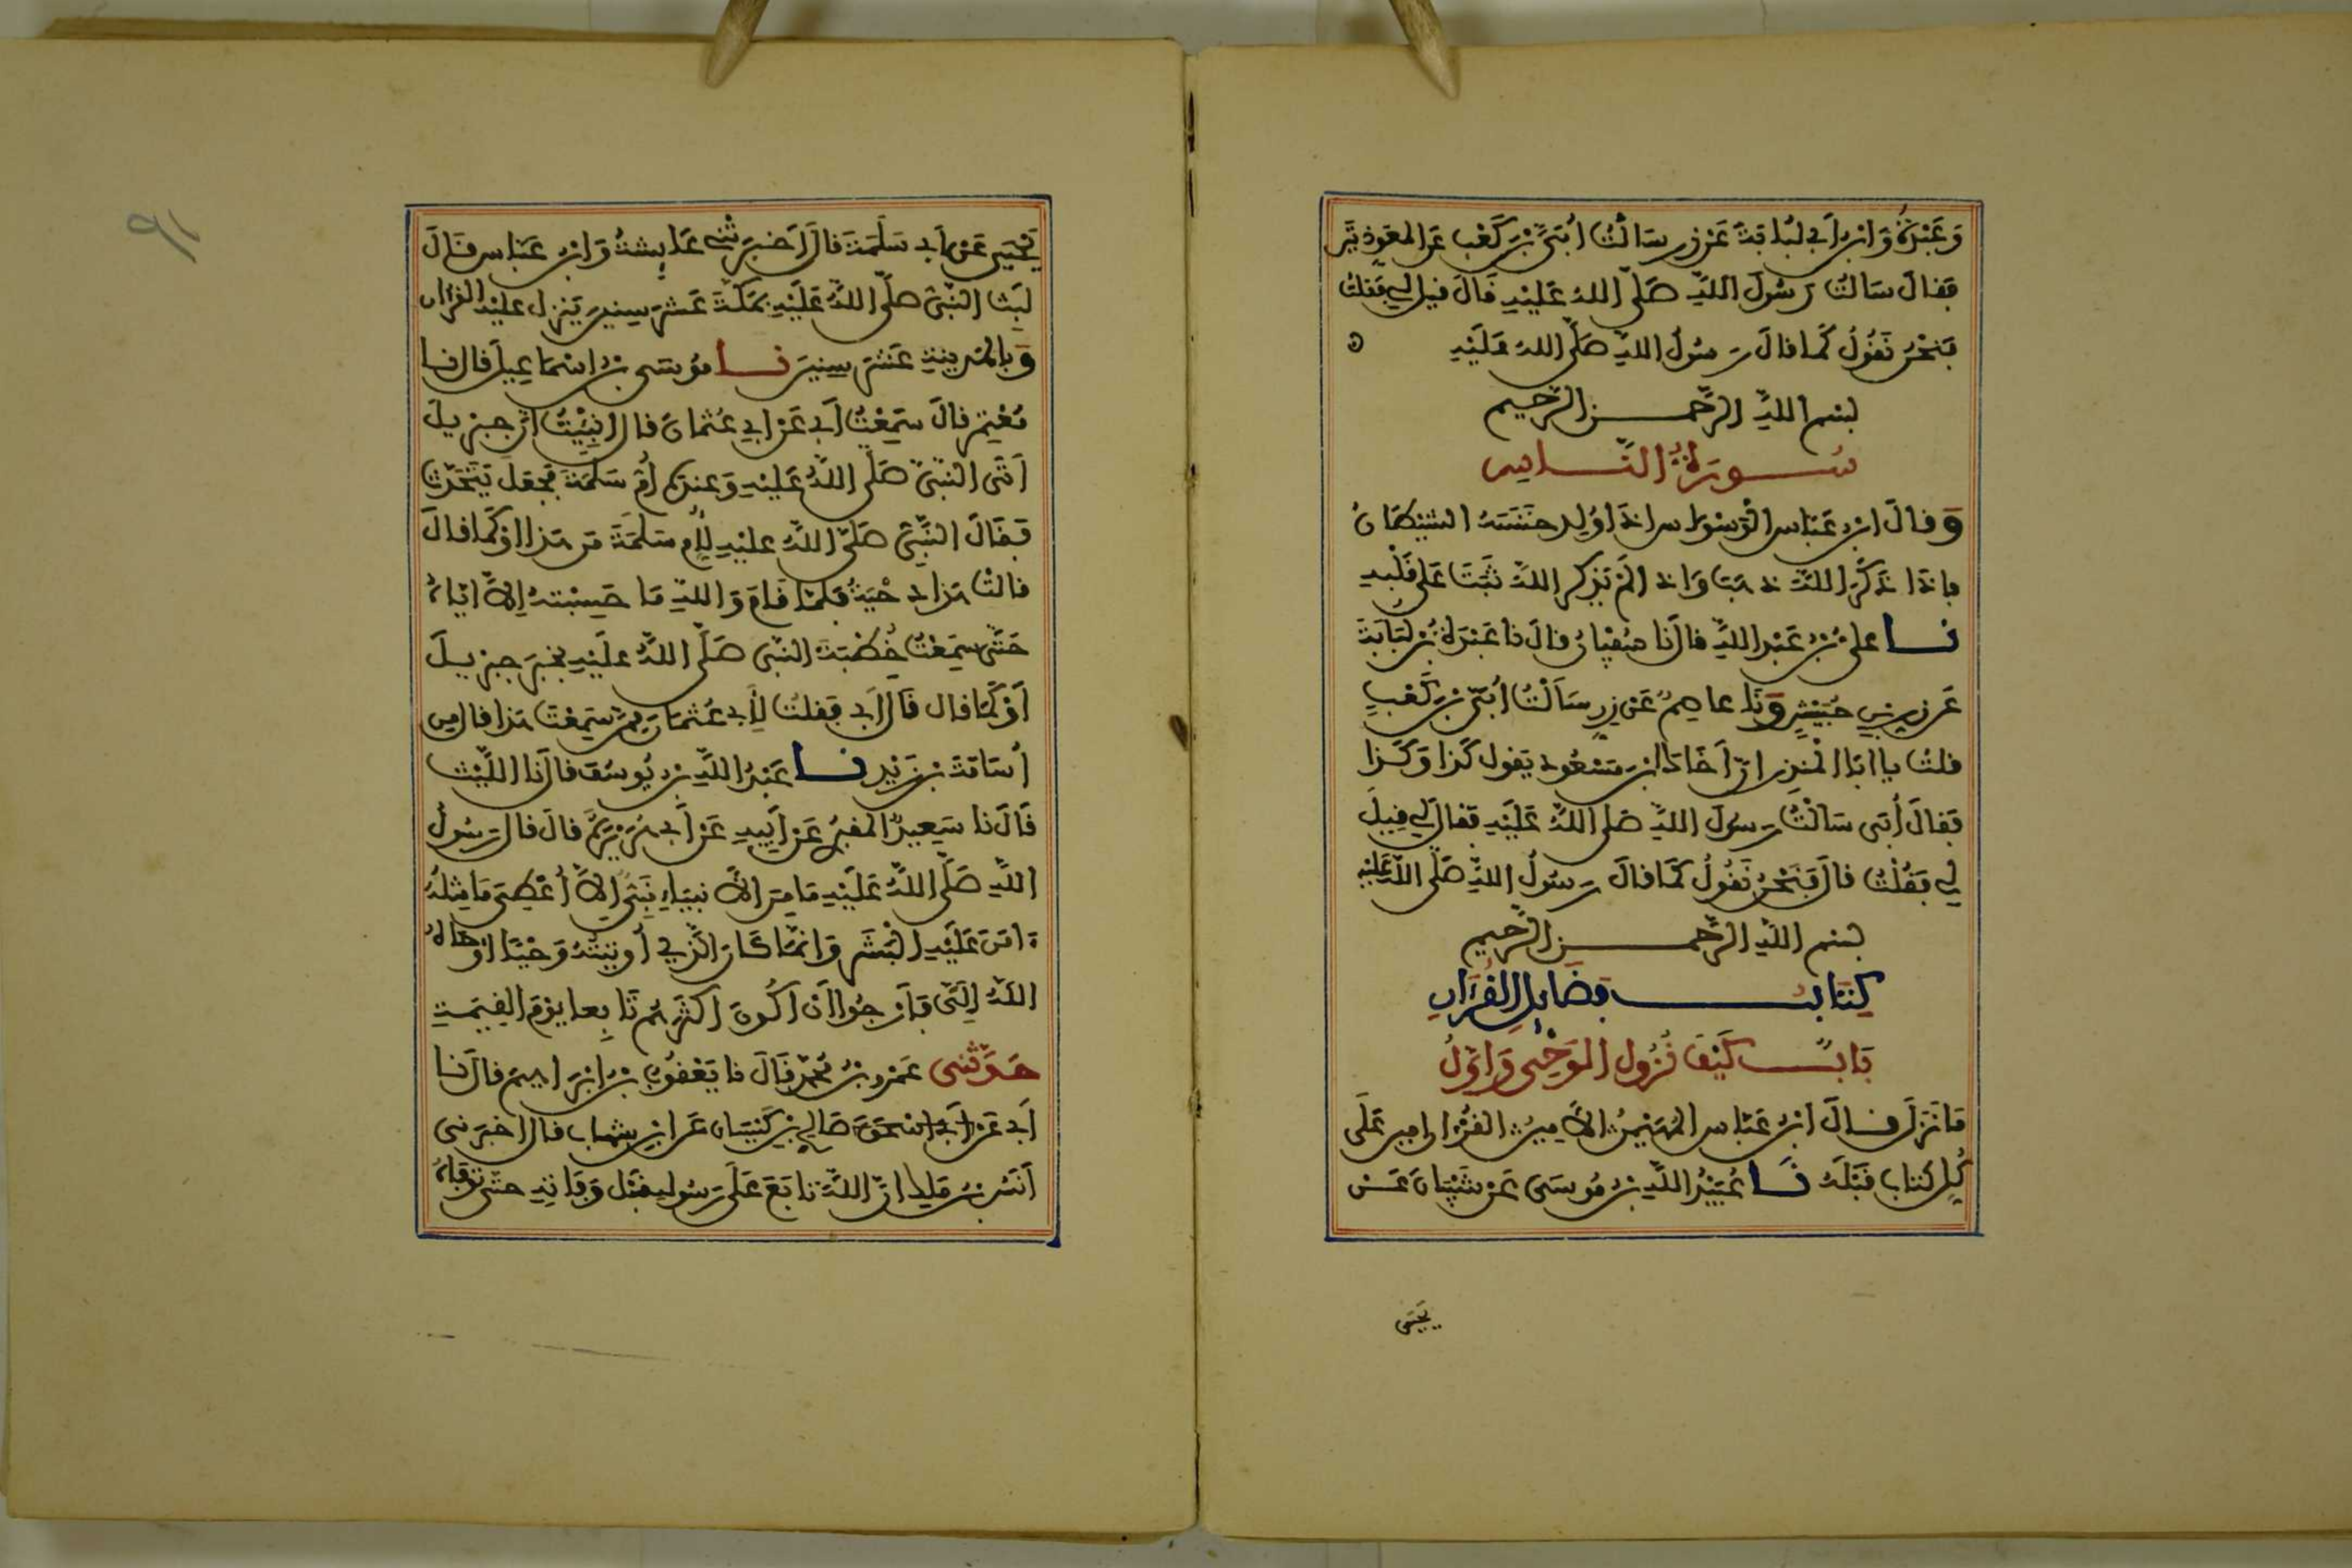 وَعَبْدَةُ وَابْنُ أَبِي لُبَابَةَ عَنْ زِرٍّ سَأَلْتُ أُبَيَّ بْنَ كَعْبٍ عَنِ المعوذتين
فقالَ سَأَلْتُ رَسُولَ اللَّهِ صَلَّى اللهُ عَلَيْهِ قَالَ قيل لي فقلتُ
فَنَحْنُ نَقُولُ كَمَا قالَ رَسُولُ اللَّهِ صَلَّى اللهُ عَلَيْهِ
بسم اللَّهِ الرَّحْمن الرَّحِيم
سُورَةُ النَّاسِ
وقالَ ابْنُ عَبَّاس الوَسْوَاس إِذَا وُلِدَ خَنَسَهُ الشيْطَانُ
فإِذَا ذُكِرَ اللَّهُ ذهَبَ وَإذا لَمْ يُذكر اللَّهُ ثَبَتَ عَلَى قَلْبِهِ
نا علي بْنُ عَبْدِ اللَّهِ قالَ نا سُفْيَانُ قالَ نا عَبْدَةُ بْنُ لُبَابَةَ
عَن زِرِّ بْنِ حُبَيْشٍ وَنَا عاصِمٌ عَنْ زِرٍّ سَأَلْتُ أُبَيَّ بْنَ كَعْبٍ
قلتُ يا ابَا الْمُنذِر إنّ أَخَاكَ ابْنَ مَسْعُودٍ يَقول كَذا وَكَذا
فقالَ أُبَي سَأَلْتُ رسولَ اللَّهِ صَلى اللَّهُ عَلَيْهِ فقالَ لِي قِيلَ
لِي فَقُلْتُ قالَ فَنَحْنُ نَقُولُ كَمَا قالَ رَسُولُ اللَّهِ صَلَّى اللَّه عَلَيْهِ
بسم اللَّهِ الرَّحْمن الرَّحِيم
كِتَابُ فَضَايِلِ الْقُرْآنِ
بَابٌ كَيْفَ نُزُول الوَحْيِ وَأَوَّلُ
مَا نَزَلَ قالَ ابْنُ عَبَّاس المُهَيْمِنُ الأَمِينُ القُرْآن امين عَلَى
كُلِّ كتاب قَبْلَهُ نَا عُبَيْدُ اللَّهِ بْنُ مُوسَى عَنْ شَيْبَانَ عَنْ
يَحْيَى
يَحْيَى عَنْ أَبِي سَلَمَةَ قالَ أَخْبَرَتْنِي عَايِشَةُ وَابْنُ عَبَّاس قَالَ
لَبِثَ النَّبِيُّ صَلَّى اللَّهُ عَلَيْهِ بمَكَّةَ عَشْرَ سِنِينَ يَنزل عليْهِ القرآن
وَبِالمَدِينَةِ عَشْرَ سِنِينَ نا مُوسَى بْنُ إسْمَاعِيلَ قال نا
مُعْتَمِر قالَ سَمِعْتُ أَبِي عَنْ أَبِي عُثْمَانَ قالَ أُنْبِئْتُ أَنّ جِبْرِيلَ
أَتَى النَّبِيَّ صَلَّى اللَّهُ عَلَيْهِ وَعِندَهُ أُمُّ سَلَمَةَ فَجَعَلَ يَتَحَدَّثُ
فَقَالَ النَّبِيُّ صَلَّى اللَّهُ عليْهِ لِأُمِّ سَلَمَةَ مَن هَذا أَوْ كَمَا قالَ
قالتْ هَذا دِحْيَةُ فلمَّا قَامَ وَاللَّهِ مَا حَسِبْتهُ إلاَّ إيَّاهُ
حَتَّى سَمِعْتُ خُطْبَةَ النَّبِيّ صَلَّى اللَّهُ علَيْهِ بخَبَر جِبْرِيلَ
أَوْ كَمَا قال قَالَ أَبِي فقلتُ لِأَبِي عُثمَانَ مِمَّنْ سَمِعْتَ هَذا قالَ مِن
أُسَامَةَ بْنِ زَيْدٍ نا عَبْدُ اللَّهِ بْنُ يُوسُفَ قالَ نَا اللَّيْثُ
قَالَ نَا سَعِيدٌ المقبري عَنْ أَبِيهِ عَنْ أَبِي هُرَيْرَةَ قالَ قال رَسُولُ
اللَّهِ صَلَّى اللَّهُ عَلَيْهِ مَا مِنَ الأَنبيَاءِ نَبِيّ إلاَّ أُعْطِيَ مَا مِثْلُهُ
ءامَنَ عَلَيْهِ الْبَشَر وَإنَّمَا كَانَ الَّذِي أُوتِيتُهُ وَحْيًا أَوْحَاهُ
اللَّهُ إِلَيَّ فَأَرْجُوا أَنْ أَكُونَ أكثرَهُم تَابِعا يَوْمَ القِيَمَةِ
حَدَّثَنِي عَمْرُو بْنُ مُحَمَّدٍ قَالَ نا يَعْقُوبُ بْنُ إبْرَاهِيمَ قالَ نا
أَبِي عَنْ أَبِي إسْحَقَ صَالِح بْنِ كَيْسَانَ عَن ابْنِ شِهَاب قالَ أخبَرَنِي
أَنَسُ بْنُ مَلِك أَنَّ اللَّهَ تَابَعَ عَلَى رَسُولِهِ قَبْل وَفَاتِهِ حَتَّى تَوَفَّاهُ
٩١